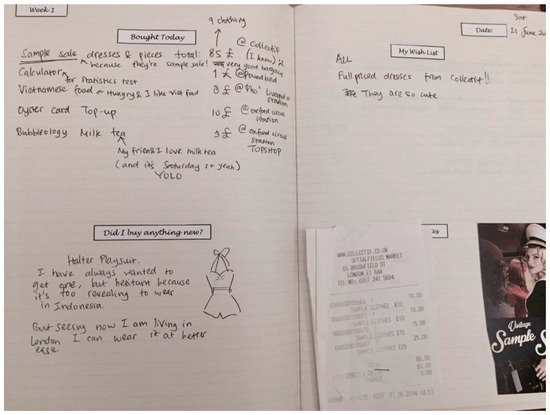 Week 1
Bought Today
9 clothing
Sample sale dresses & pieces total: 85 £ @ Collectif
because they're sample sale! (I know) very good bargain
Calculator 1 £ @ Poundland
for statistics test
Vietnamese food Hungry & I like viet food 8 £ @ Pho station
Oyster card Top-up 10 £ @ oxford circus station
Bubbleology Milk tea 3 £ @ oxford circus station
TOPSHOP
My friend & I love milk tea
(and it's Saturday so yeah)
YOLO
Did I buy anything new?
Halter Playsuit.
I have always wanted to
get one, but hesitant because
it's too revealing to wear
in Indonesia.
But seeing now I am living in
London I can wear it at better
ease
Date:
21 June
My Wish List
ALL
Full priced dresses from Collectif!!
They are so cute
WWW.COLLECTIF.CO.UK
SPITALFIELDS MARKET
LONDON E1 6AA
SAMPLE CLOTHES £10 10.00
SAMPLE CLOTHES £10 10.00
15.00
SAMPLE CLOTHES £25 25.00
Vintage
Sample